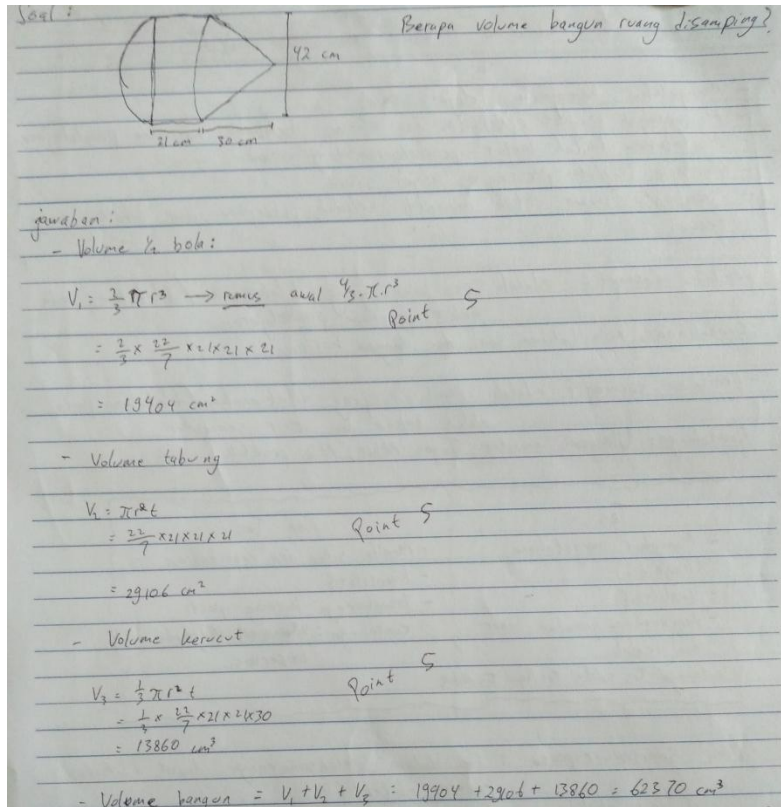 Soal :
Berapa volume bangun ruang disamping?
42 cm
21 cm 30 cm
jawaban :
- Volume ½ bola :
V₁ = 2/3 π r³ → rumus awal 4/3 . π . r³
Point 5
= 2/3 × 22/7 × 21 × 21 × 21
= 19404 cm²
- Volume tabung
V₂ = πr²t
Point 5
= 22/7 × 21 × 21 × 21
= 29106 cm²
- Volume kerucut
Point 5
V₃ = 1/3 π r² t
= 1/3 × 22/7 × 21 × 21 × 30
= 13860 cm³
- Volume bangun = V₁ + V₂ + V₃ : 19404 + 29106 + 13860 = 62370 cm³